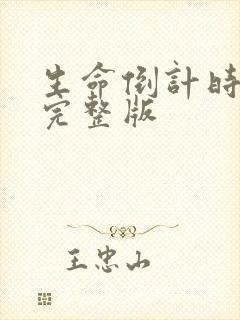 生命倒計時
完整版
王忠山